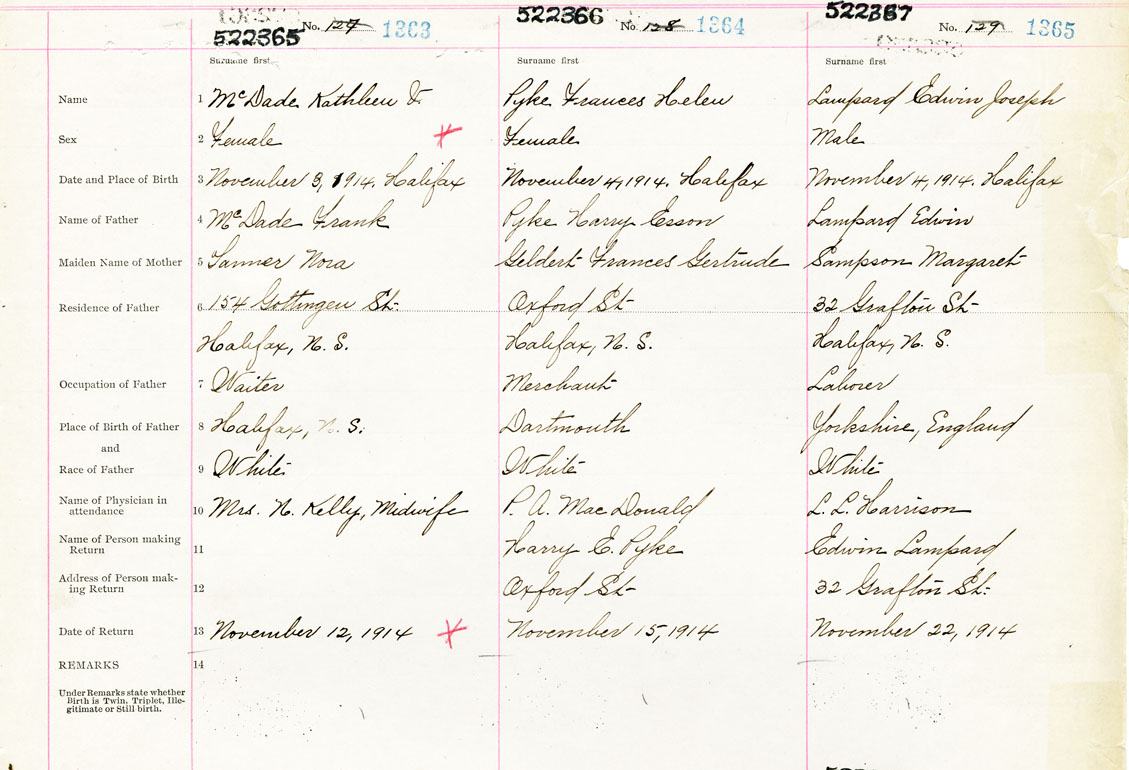 522365 No. 127 1363
522366 No. 128 1364
522367 No. 129 1365
Surname first Surname first Surname first
Name 1 McDade Kathleen Pyke Frances Helen Lampard Edwin Joseph
Sex 2 Female Female Male
Date and Place of Birth 3 November 3, 1914. Halifax November 4, 1914. Halifax November 4, 1914. Halifax
Name of Father 4 McDade Frank Pyke Harry Esson Lampard Edwin
Maiden Name of Mother 5 Tanner Nora Geldert Frances Gertrude Sampson Margaret
Residence of Father 6 154 Gottingen St. Oxford St 32 Grafton St
Halifax, N. S. Halifax, N. S. Halifax, N. S.
Occupation of Father 7 Waiter Merchant Laborer
Place of Birth of Father 8 Halifax, N. S. Dartmouth Yorkshire, England
and
Race of Father 9 White White White
Name of Physician in
attendance 10 Mrs. N. Kelly, Midwife P. A. MacDonald L. L. Harrison
Name of Person making
Return 11 Harry E. Pyke Edwin Lampard
Address of Person mak-
ing Return 12 Oxford St 32 Grafton St.
Date of Return 13 November 12, 1914 November 15, 1914 November 22, 1914
REMARKS 14
Under Remarks state whether
Birth is Twin, Triplet, Ille-
gitimate or Still birth.